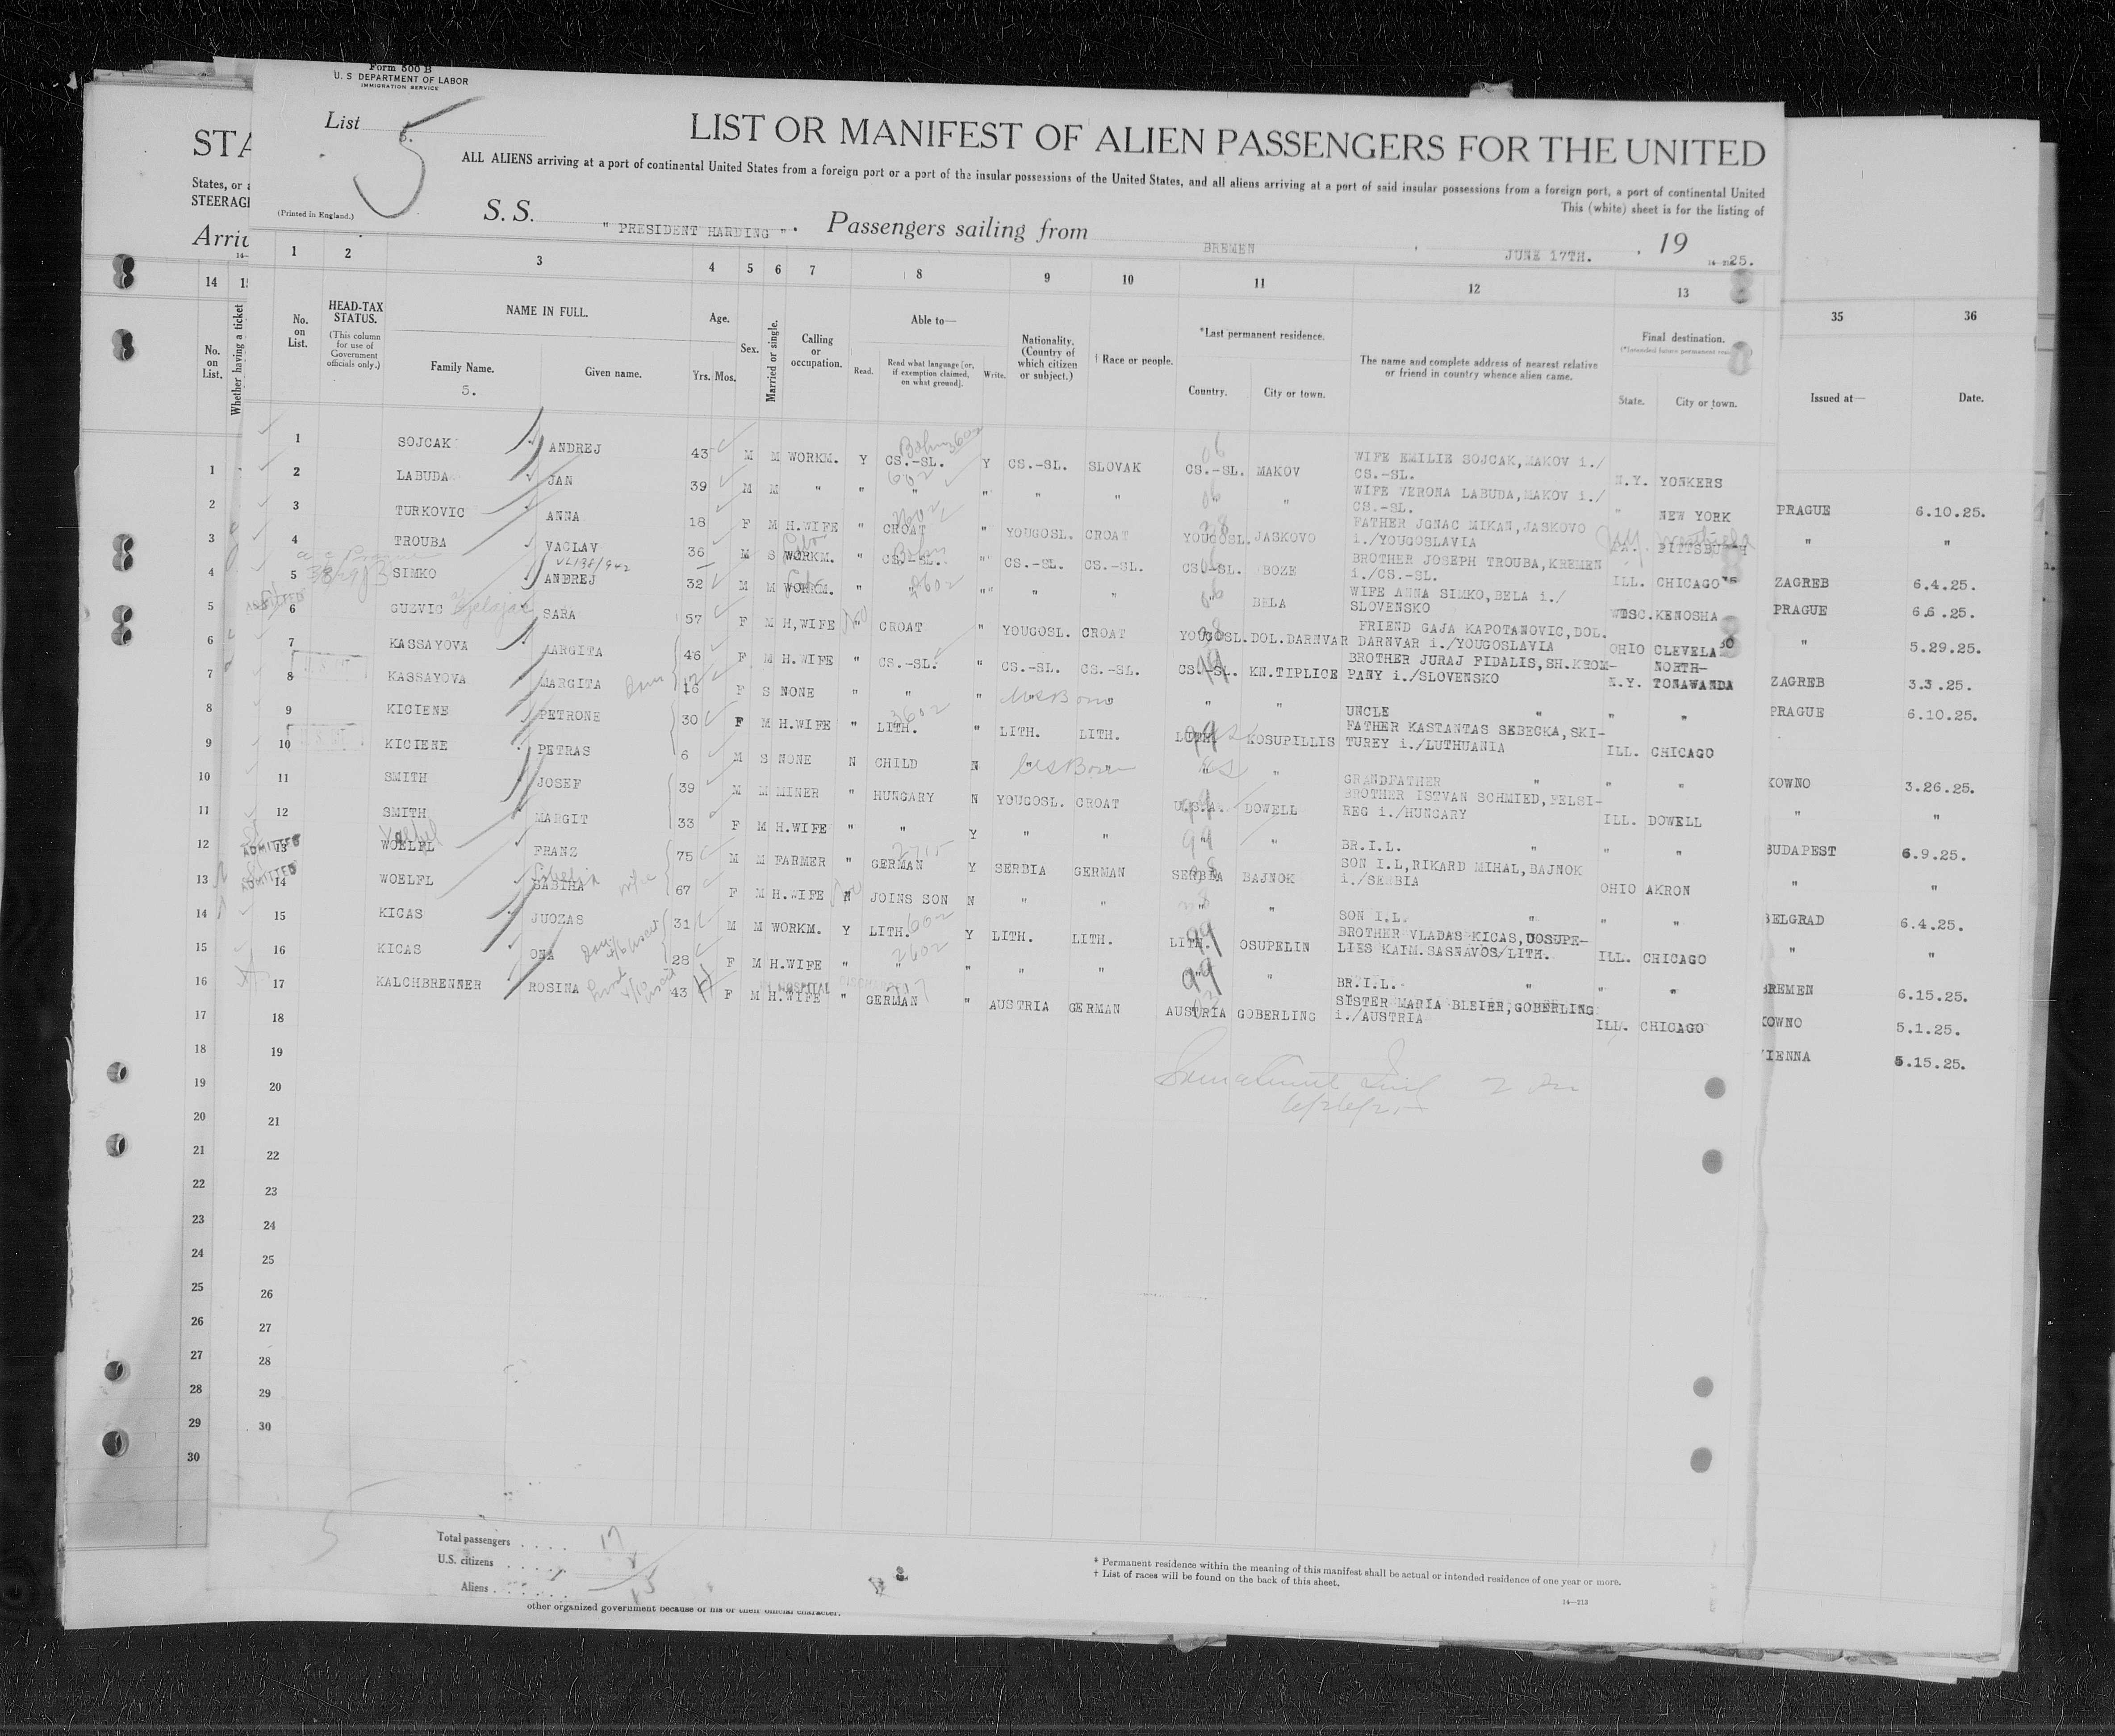 Form 500 B
U. S DEPARTMENT OF LABOR
IMMIGRATION SERVICE
List 5.
5
LIST OR MANIFEST OF ALIEN PASSENGERS FOR THE UNITED
STA
ALL ALIENS arriving at a port of continental United States from a foreign port or a port of the insular possessions of the United States, and all aliens arriving at a port of said insular possessions from a foreign port, a port of continental United
States, or a
This (white) sheet is for the listing of
STEERAG
(Printed in England.)
S. S. " PRESIDENT HARDING ". Passengers sailing from BREMEN , JUNE 17TH. , 19 25.
Arriv
14 1
1 2 3 4 5 6 7 8 9 10 11 12 13
35 36
No. on List.
Whether having a ticket
No. on List.
HEAD-TAX STATUS.
(This column for use of Government officials only.)
NAME IN FULL.
Family Name.
5.
Given name.
Age.
Yrs. Mos.
Sex.
Married or single.
Calling or occupation.
Able to—
Read.
Read what language [or, if exemption claimed, on what ground].
Write.
Nationality. (Country of which citizen or subject.)
† Race or people.
*Last permanent residence.
Country. City or town.
The name and complete address of nearest relative or friend in country whence alien came.
Final destination.
State. City or town.
Issued at—
Date.
1 SOJCAK ANDREJ 43 M M WORKM. Y CS.-SL. Y CS.-SL. SLOVAK CS.-SL. MAKOV WIFE EMILIE SOJCAK,MAKOV i./ CS.-SL. N.Y. YONKERS
2 LABUDA JAN 39 M M " " " " " " " WIFE VERONA LABUDA,MAKOV i./ CS.-SL. " NEW YORK
3 TURKOVIC ANNA 18 F M H.WIFE " CROAT " YOUGOSL. CROAT YOUGOSL. JASKOVO FATHER JGNAC MIKAN,JASKOVO i./YOUGOSLAVIA PA. PITTSBURGH
4 TROUBA VACLAV 36 M S WORKM. " CS.-SL. " CS.-SL. CS.-SL. CS.-SL. BOZE BROTHER JOSEPH TROUBA,KREMEN i./CS.-SL. ILL. CHICAGO
5 SIMKO ANDREJ 32 M M WORKM. " " " " " " BELA WIFE ANNA SIMKO,BELA i./ SLOVENSKO WISC.KENOSHA
6 GUZVIC SARA 57 F M H,WIFE " CROAT " YOUGOSL. CROAT YOUGOSL. DOL.DARNVAR FRIEND GAJA KAPOTANOVIC,DOL. DARNVAR i./YOUGOSLAVIA OHIO CLEVELA
7 KASSAYOVA MARGITA 46 F M H.WIFE " CS.-SL. " CS.-SL. CS.-SL. CS.-SL. KN.TIPLICE BROTHER JURAJ FIDALIS,SH.KROM- PANY i./SLOVENSKO N.Y. NORTH- TONAWANDA
8 KASSAYOVA MARGITA 16 F S NONE " " " US Born " " UNCLE " " "
9 KICIENE PETRONE 30 F M H.WIFE " LITH. " LITH. LITH. LITH. KOSUPILLIS FATHER KASTANTAS SEBECKA,SKI- TUREY i./LUTHUANIA ILL. CHICAGO
10 KICIENE PETRAS 6 M S NONE N CHILD N US Born " " GRANDFATHER " " "
11 SMITH JOSEF 39 M M MINER " HUNGARY N YOUGOSL. CROAT U.S.A. DOWELL BROTHER ISTVAN SCHMIED,FELSI- REG i./HUNGARY ILL. DOWELL
12 SMITH MARGIT 33 F M H.WIFE " " Y " " " " BR.I.L. " " "
13 WOELFL FRANZ 75 M M FARMER " GERMAN Y SERBIA GERMAN SERBIA BAJNOK SON I.L,RIKARD MIHAL,BAJNOK i./SERBIA OHIO AKRON
14 WOELFL BABIHA 67 F M H.WIFE N JOINS SON N " " " " SON I.L. " " "
15 KICAS JUOZAS 31 M M WORKM. Y LITH. Y LITH. LITH. LITH. OSUPELIN BROTHER VLADAS KICAS,UOSUPE- LIES KAIM.SASNAVOS/LITH. ILL. CHICAGO
16 KICAS ONA 28 F M H.WIFE " " " " " " " BR.I.L. " " "
17 KALCHBRENNER ROSINA 43 F M H.WIFE " GERMAN " AUSTRIA GERMAN AUSTRIA GOBERLING SISTER MARIA BLEIER,GOBERLING i./AUSTRIA ILL. CHICAGO
ADMITTED
ADMITTED
ADMITTED
HOSPITAL DISCHARGED
18
19
20
21
22
23
24
25
26
27
28
29
30
1 PRAGUE 6.10.25.
2 " "
3 ZAGREB 6.4.25.
4 PRAGUE 6.6.25.
5 " 5.29.25.
6 ZAGREB 3.3.25.
7 PRAGUE 6.10.25.
8
9 KOWNO 3.26.25.
10 " "
11 BUDAPEST 6.9.25.
12 " "
13 BELGRAD 6.4.25.
14 " "
15 BREMEN 6.15.25.
16 KOWNO 5.1.25.
17 VIENNA 5.15.25.
18
19
20
21
22
23
24
25
26
27
28
29
30
5
Total passengers . . . . 17
U.S. citizens . . . .
Aliens . . . . . . 15
* Permanent residence within the meaning of this manifest shall be actual or intended residence of one year or more.
† List of races will be found on the back of this sheet.
14—213
other organized government because of his or their official character.